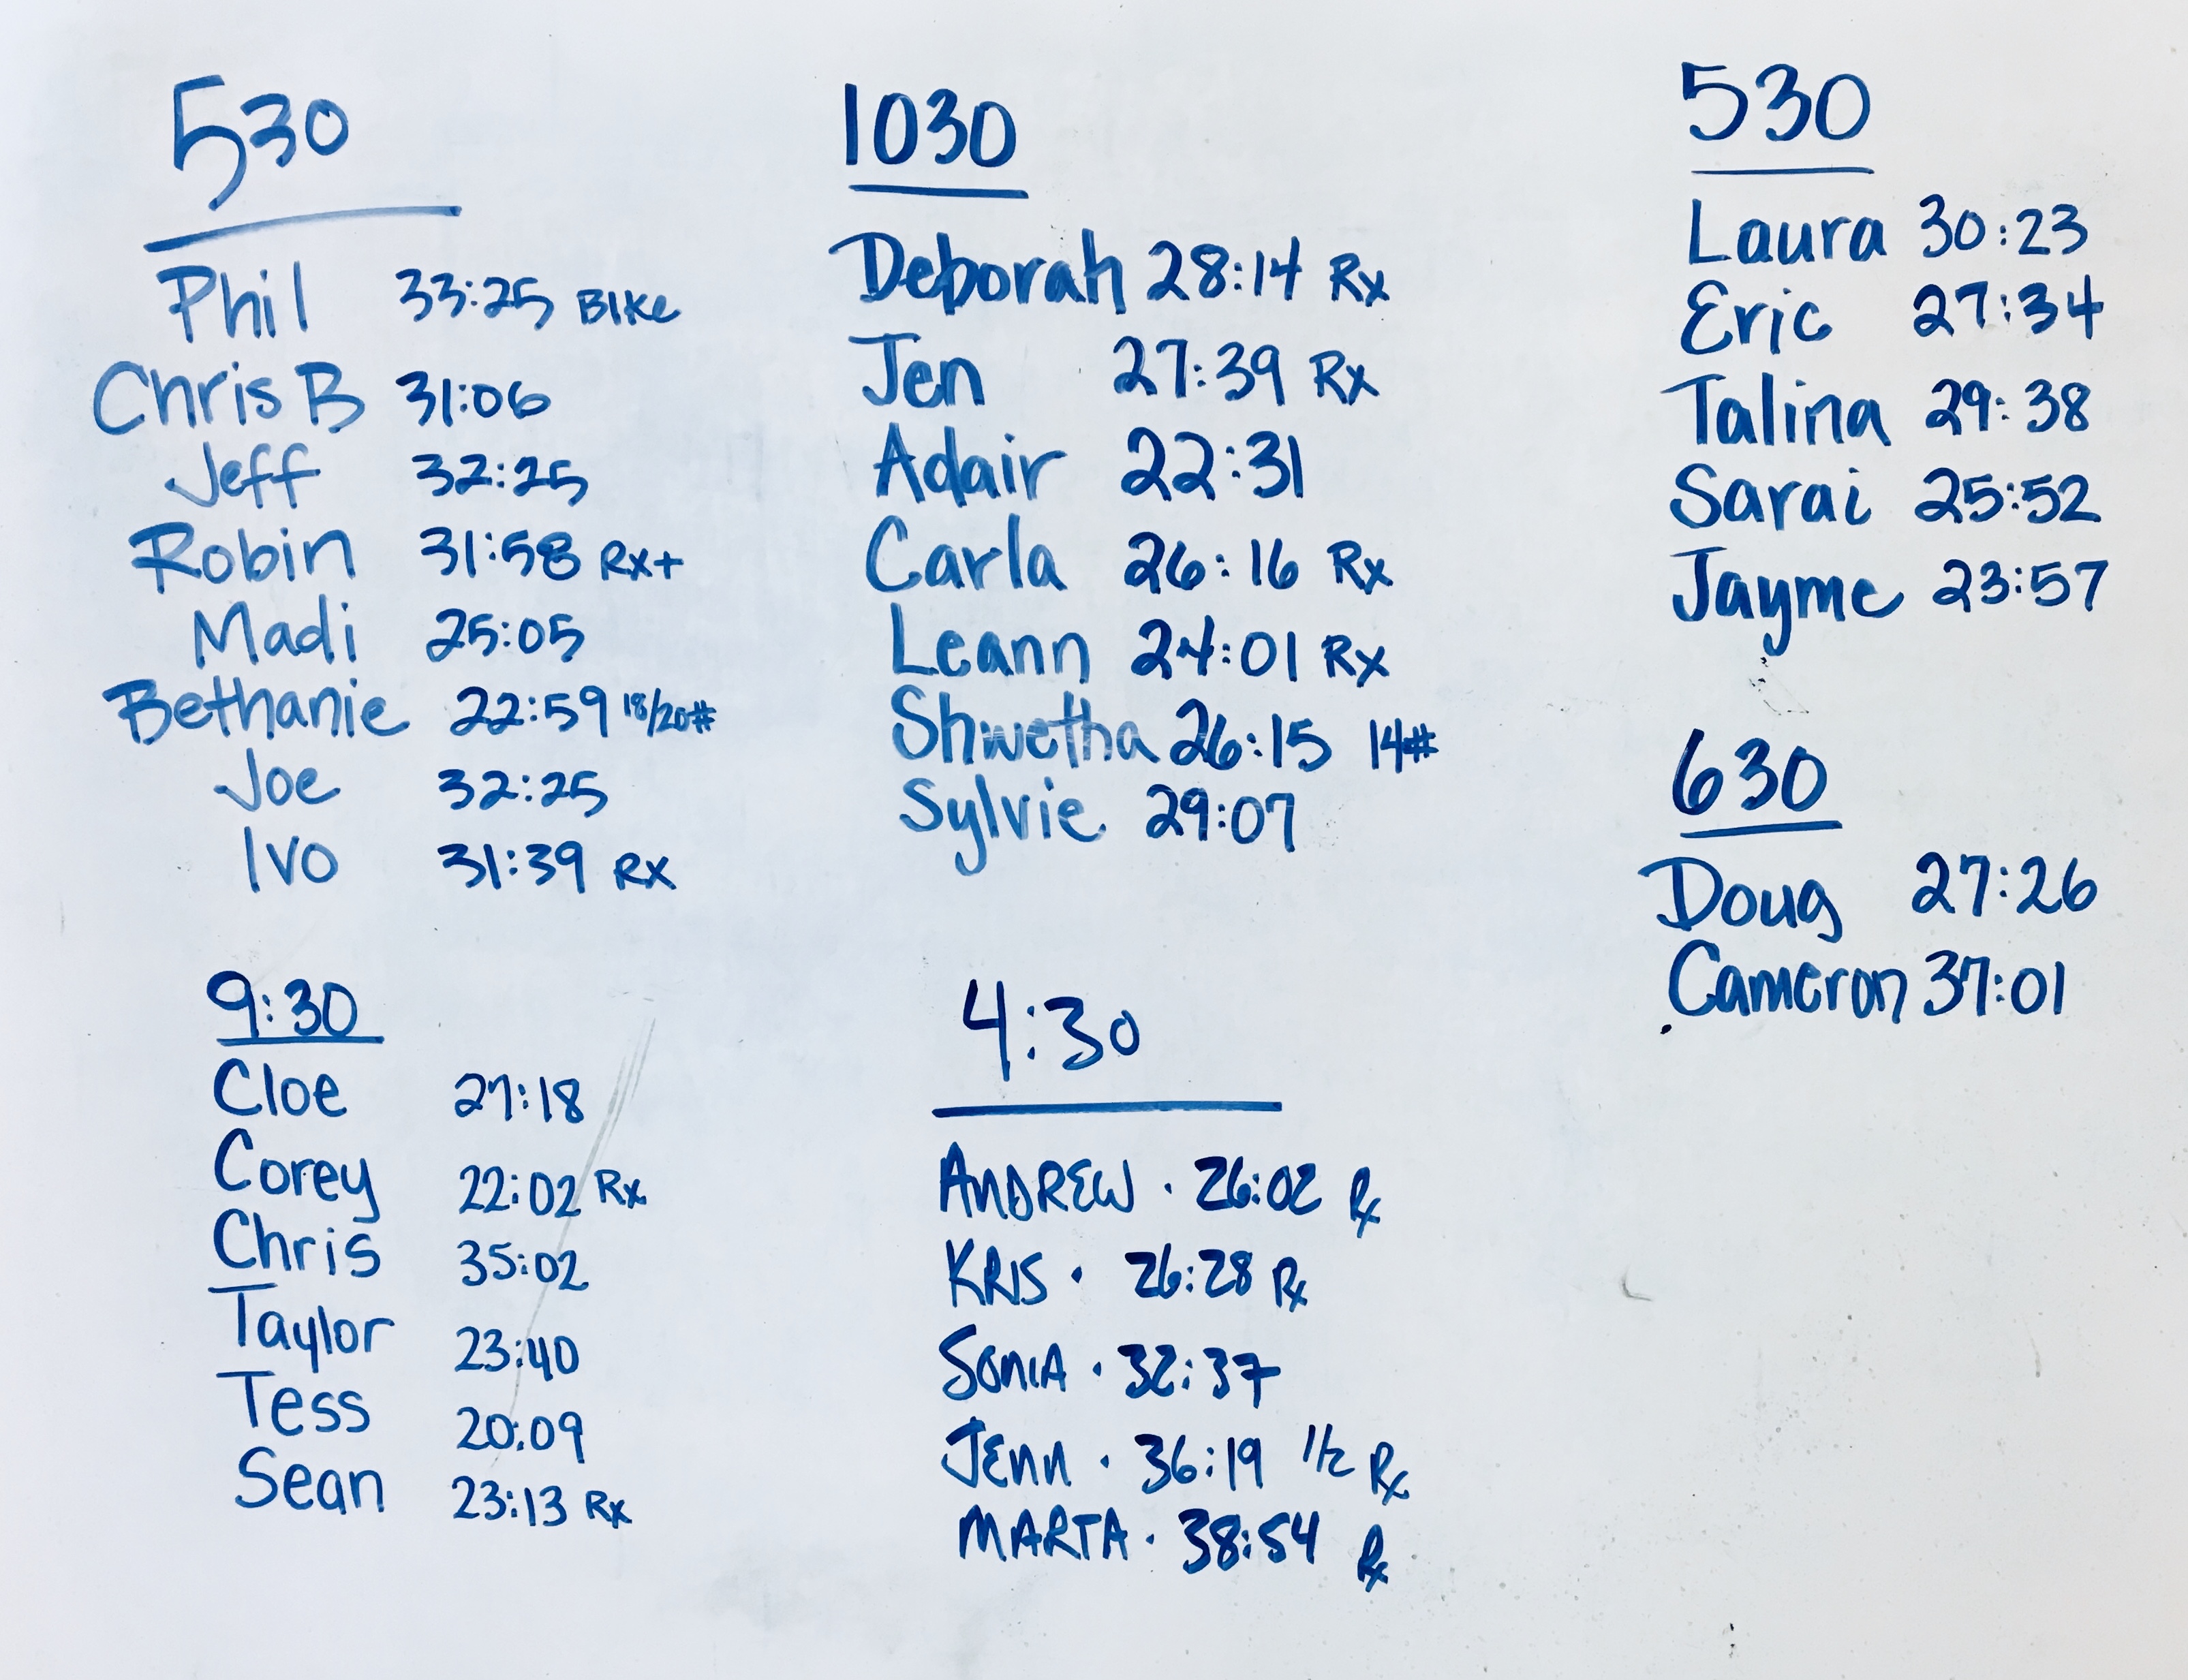 530
Phil 33:25 Bike
Chris B 31:06
Jeff 32:25
Robin 31:58 Rx+
Madi 25:05
Bethanie 22:59 18/20#
Joe 32:25
Ivo 31:39 Rx
9:30
Cloe 27:18
Corey 22:02 Rx
Chris 35:02
Taylor 23:40
Tess 20:09
Sean 23:13 Rx
1030
Deborah 28:14 Rx
Jen 27:39 Rx
Adair 22:31
Carla 26:16 Rx
Leann 24:01 Rx
Shwetha 26:15 14#
Sylvie 29:07
4:30
ANDREW · 26:02 Rx
KRIS · 26:28 Rx
SONIA · 32:37
JENN · 36:19 1/2 Rx
MARTA · 38:54 Rx
530
Laura 30:23
Eric 27:34
Talina 29:38
Sarai 25:52
Jayme 23:57
630
Doug 27:26
Cameron 37:01